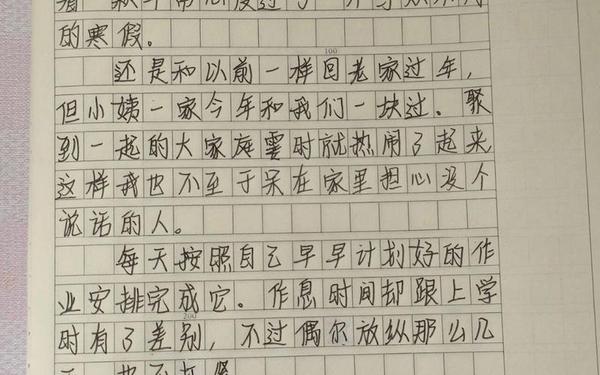 的寒假。
100
还是和以前一样回老家过年，
但小姨一家今年和我们一块过。聚
到一起的大家庭霎时就热闹了起来
这样我也不至于呆在家里担心没个
说话的人。
每天按照自己早早计划好的作
业安排完成它。作息时间却跟上学
200
时有了差别，不过偶尔放纵那么几